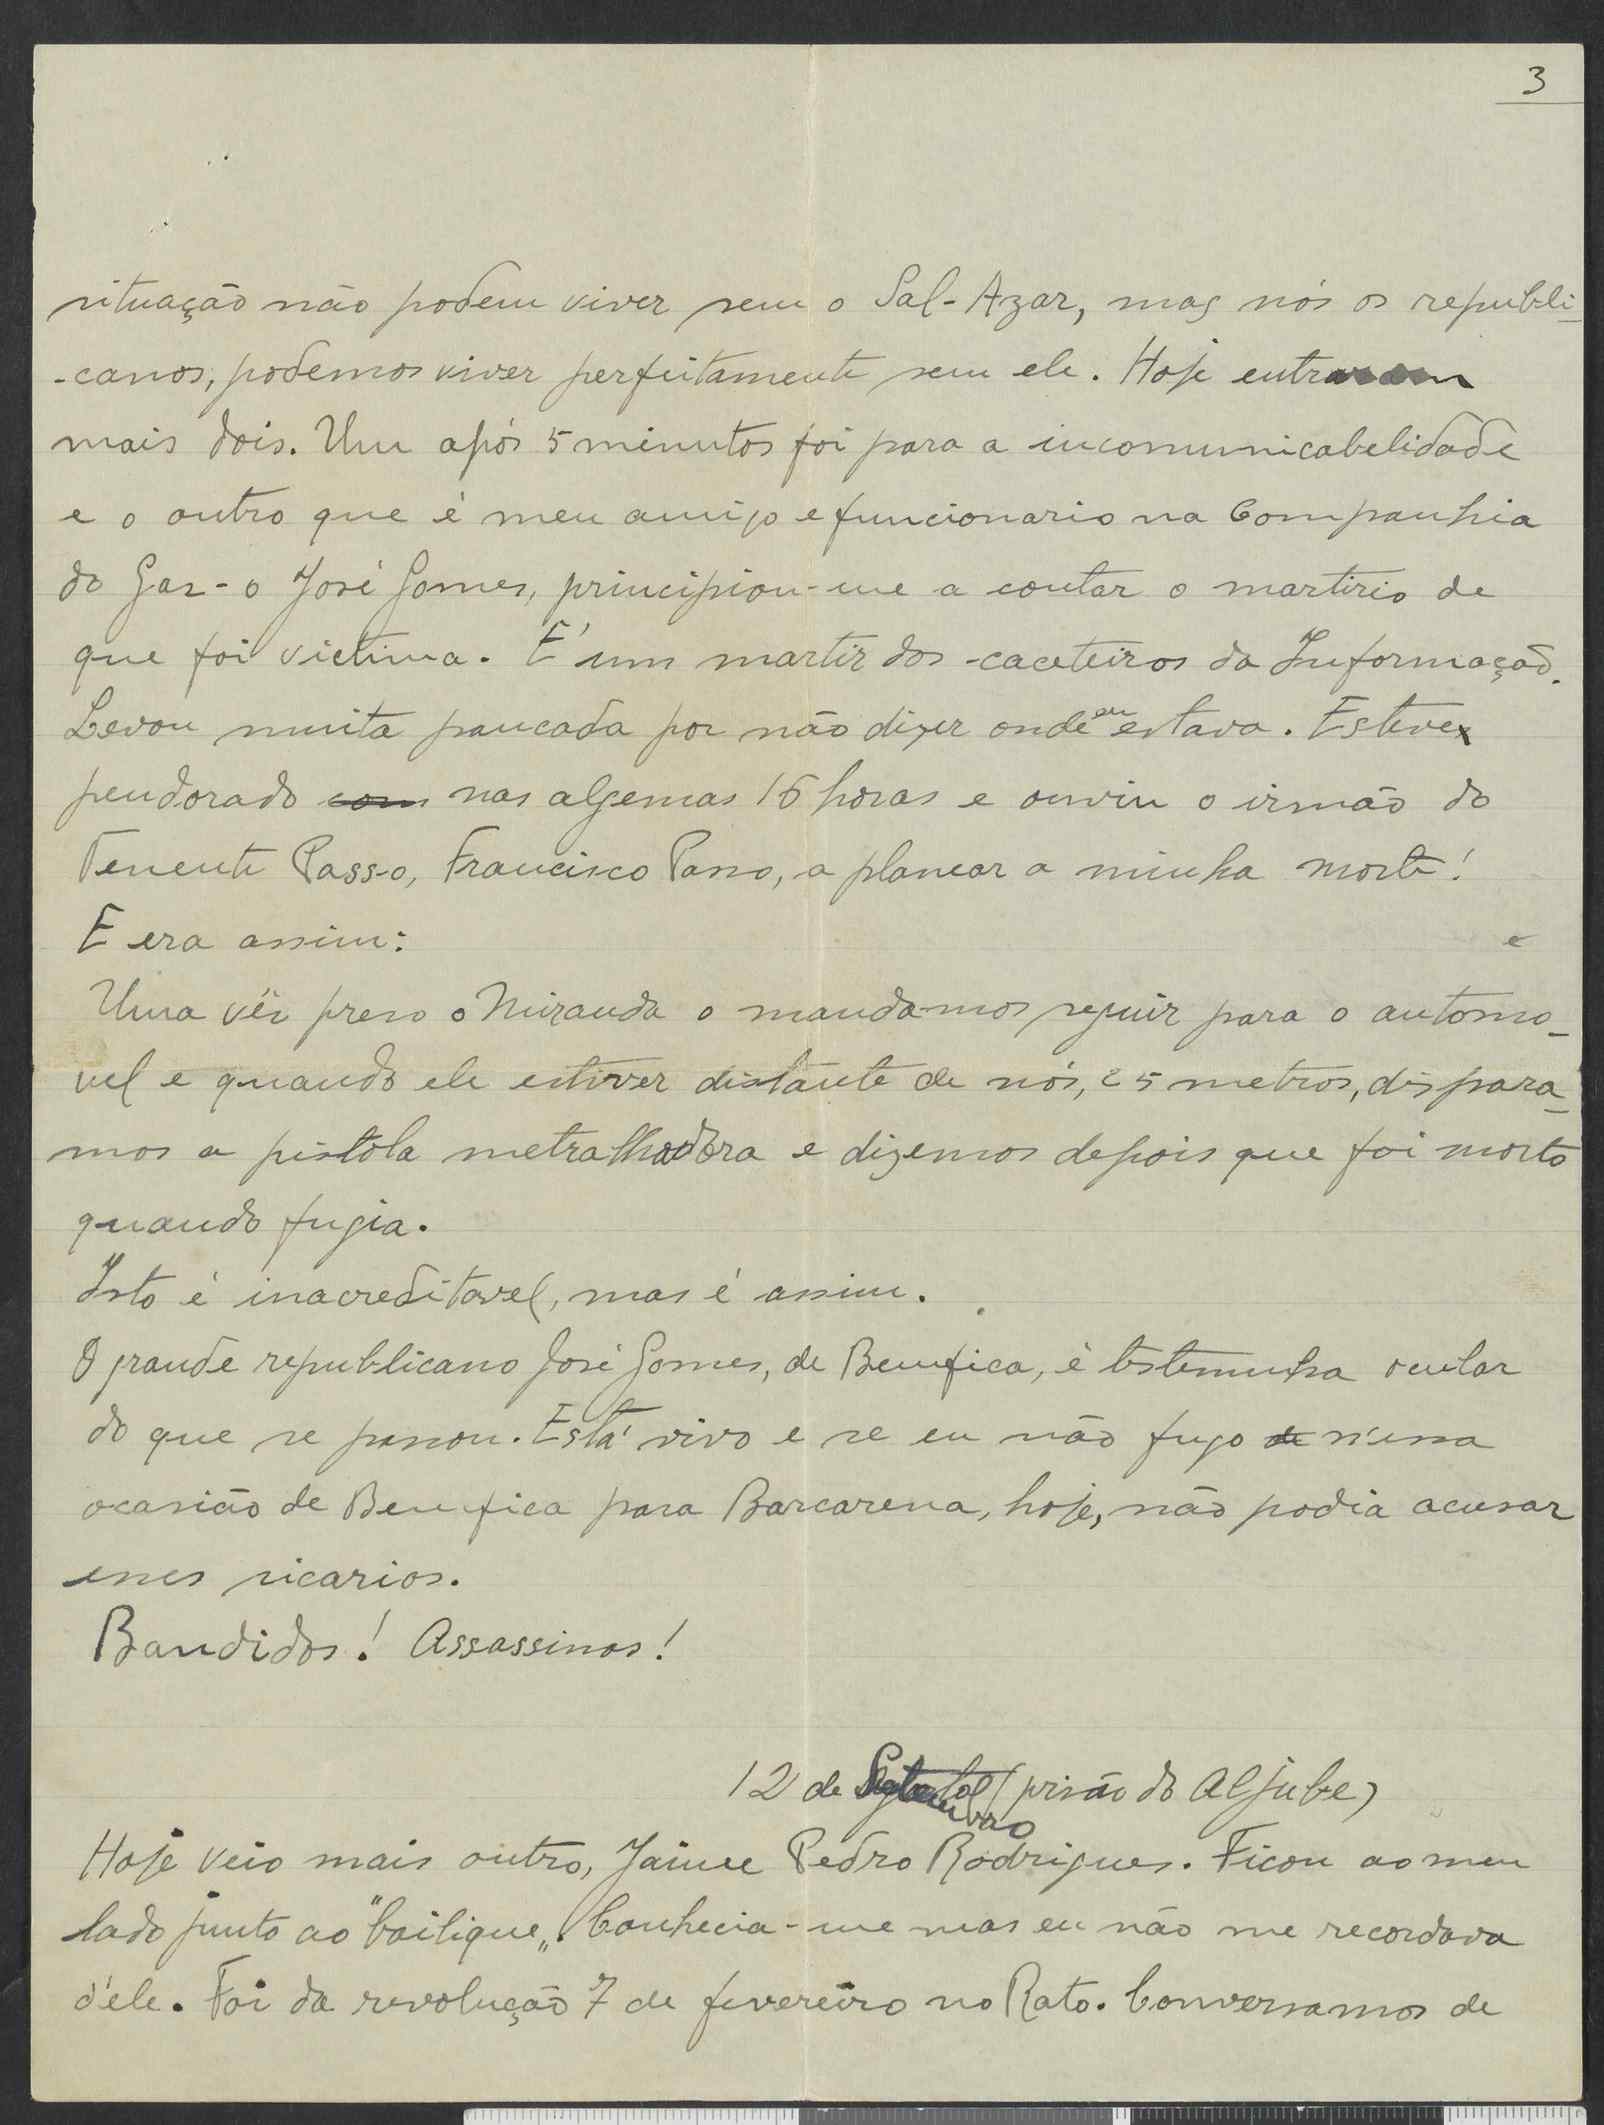 3
situação não podem viver sem o Sal-Azar, mas nós os republi-
-canos, podemos viver perfeitamente sem ele. Hoje entraram
mais dois. Um após 5 minutos foi para a incomunicabelidade
e o outro que é meu amigo e funcionario na Companhia
do Gaz - o José Gomes, principiou-me a contar o martirio de
que foi victima. E' um martir dos caceteiros da Informação.
Levou muita pancada por não dizer onde eu estava. Esteve
pendorado com nas algemas 16 horas e ouviu o irmão do
Tenente Passo, Francisco Passo, a planear a minha morte!
E era assim:
Uma vês preso o Miranda o mandamos seguir para o automo-
vel e quando ele estiver distante de nós, 25 metros, dispara-
mos a pistola metralhadora e dizemos depois que foi morto
quando fugia.
Isto é inacreditavel, mas é assim.
O grande republicano José Gomes, de Bemfica, é testemunha ocular
do que se passou. Está vivo e se eu não fujo de n'essa
ocasião de Bemfica para Barcarena, hoje, não podia acusar
esses sicarios.
Bandidos! Assassinos!
12 de Setembro (prisão do Aljube)
Hoje veio mais outro, Jaime Pedro Rodrigues. Ficou ao meu
lado junto ao "bailique". Conhecia-me mas eu não me recordava
d'ele. Foi da revolução 7 de fevereiro no Rato. Conversamos de